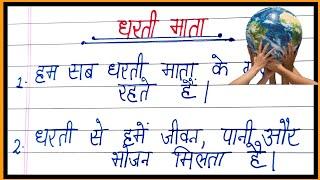 धरती माता
1. हम सब धरती माता के
रहते हैं।
2. धरती से हमें जीवन, पानी और
भोजन मिलता है।